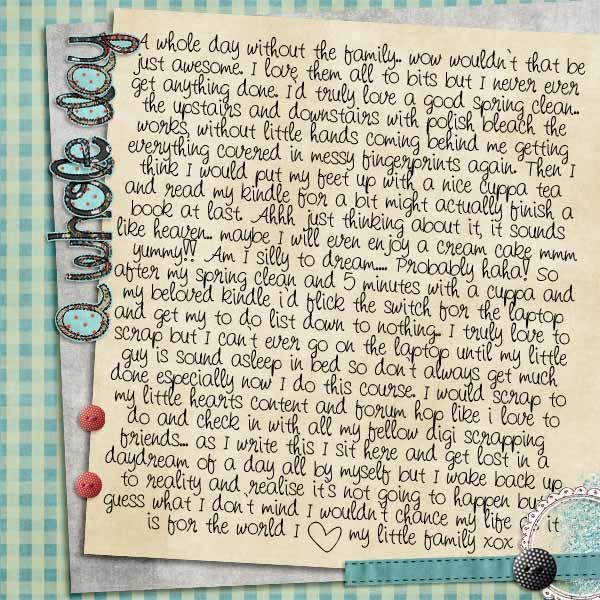 a whole day
A whole day without the family.. wow wouldn't that be
just awesome. I love them all to bits but I never ever
get anything done. I'd truly love a good spring clean..
the upstairs and downstairs with polish bleach the
works, without little hands coming behind me getting
everything covered in messy fingerprints again. Then I
think I would put my feet up with a nice cuppa tea
and read my kindle for a bit might actually finish a
book at last. Ahhh just thinking about it, it sounds
like heaven.. maybe I will even enjoy a cream cake mmm
yummy!! Am I silly to dream.... Probably haha! So
after my spring clean and 5 minutes with a cuppa and
my beloved kindle i'd flick the switch for the laptop
and get my to do list down to nothing. I truly love to
scrap but I can't ever go on the laptop until my little
guy is sound asleep in bed so don't always get much
done especially now I do this course. I would scrap to
my little hearts content and forum hop like i love to
do and check in with all my fellow digi scrapping
friends... as I write this I sit here and get lost in a
daydream of a day all by myself but I wake back up
to reality and realise it's not going to happen but
guess what I don't mind I wouldn't chance my life it
is for the world I ♡ my little family xox